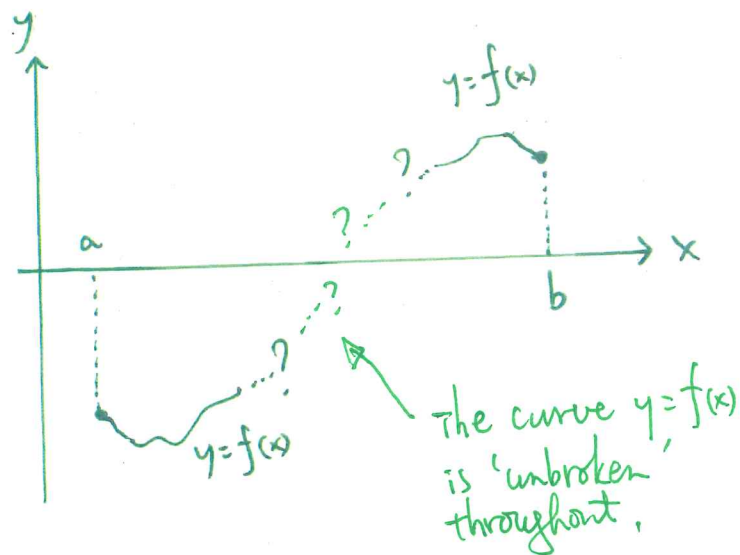 y
y=f(x)
?
?
a
x
b
?
?
y=f(x)
The curve y=f(x)
is 'unbroken'
throughout.